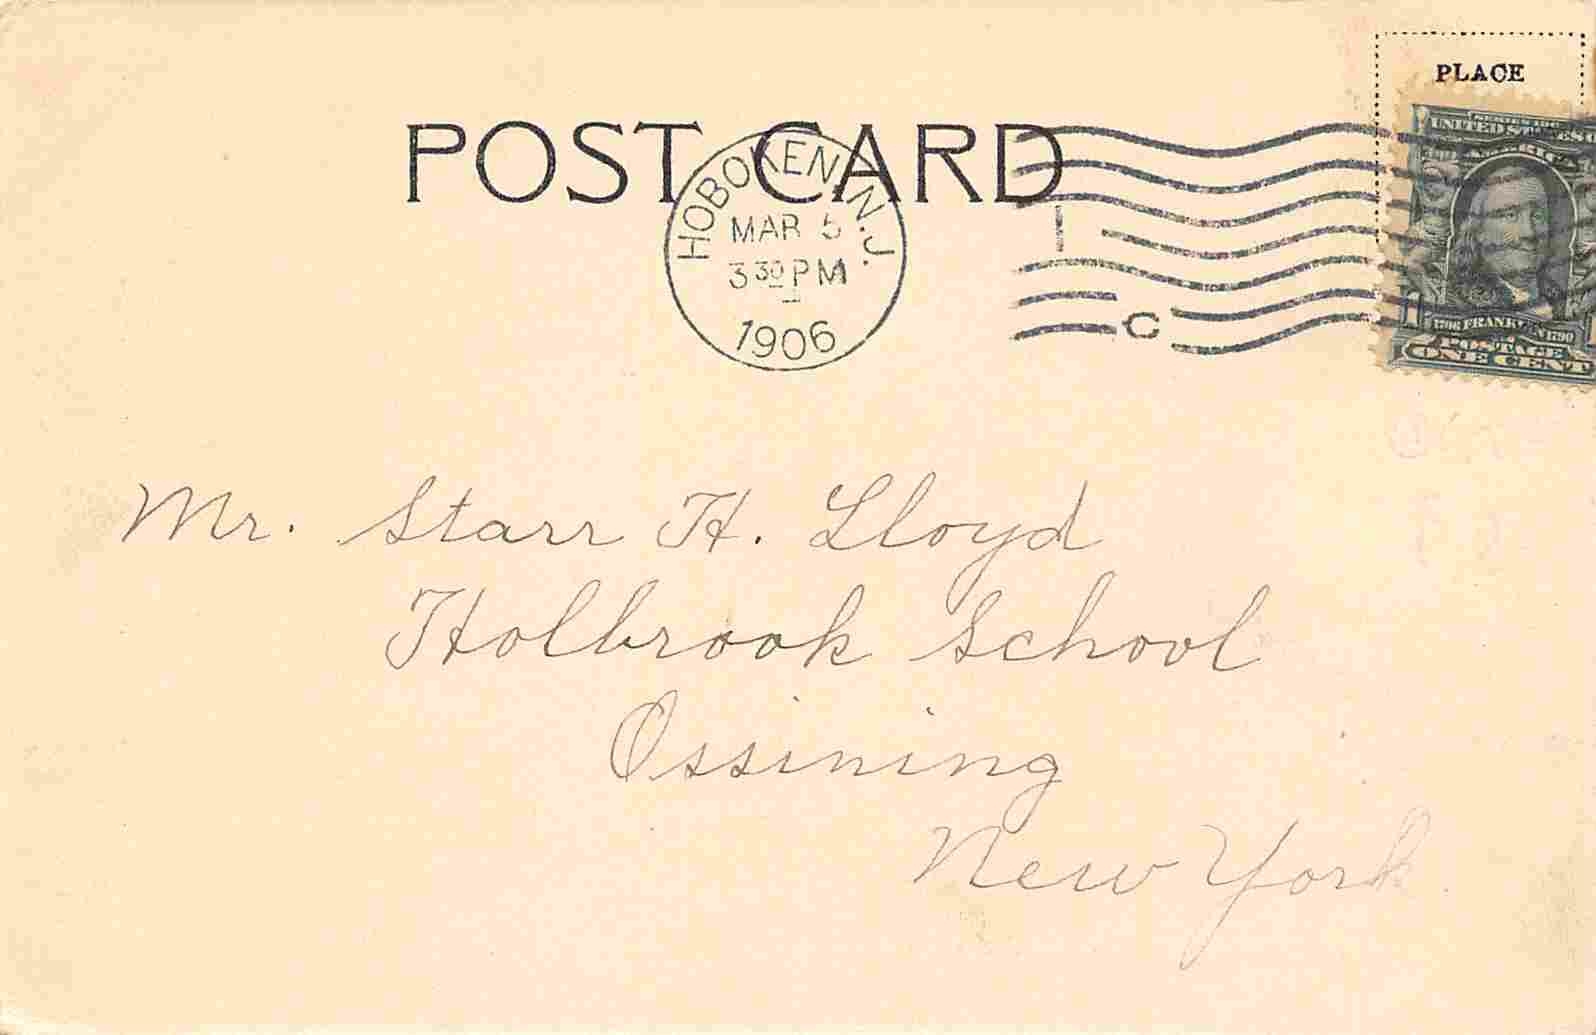 PLACE
POST CARD
HOBOKEN, N.J.
MAR 5
3 30 PM
1906
C
SERIES 1902
UNITED STATES OF
AMERICA
1
1706 FRANKLIN 1790
POSTAGE
ONE CENT
Mr. Starr H. Lloyd
Holbrook School
Ossining
New York